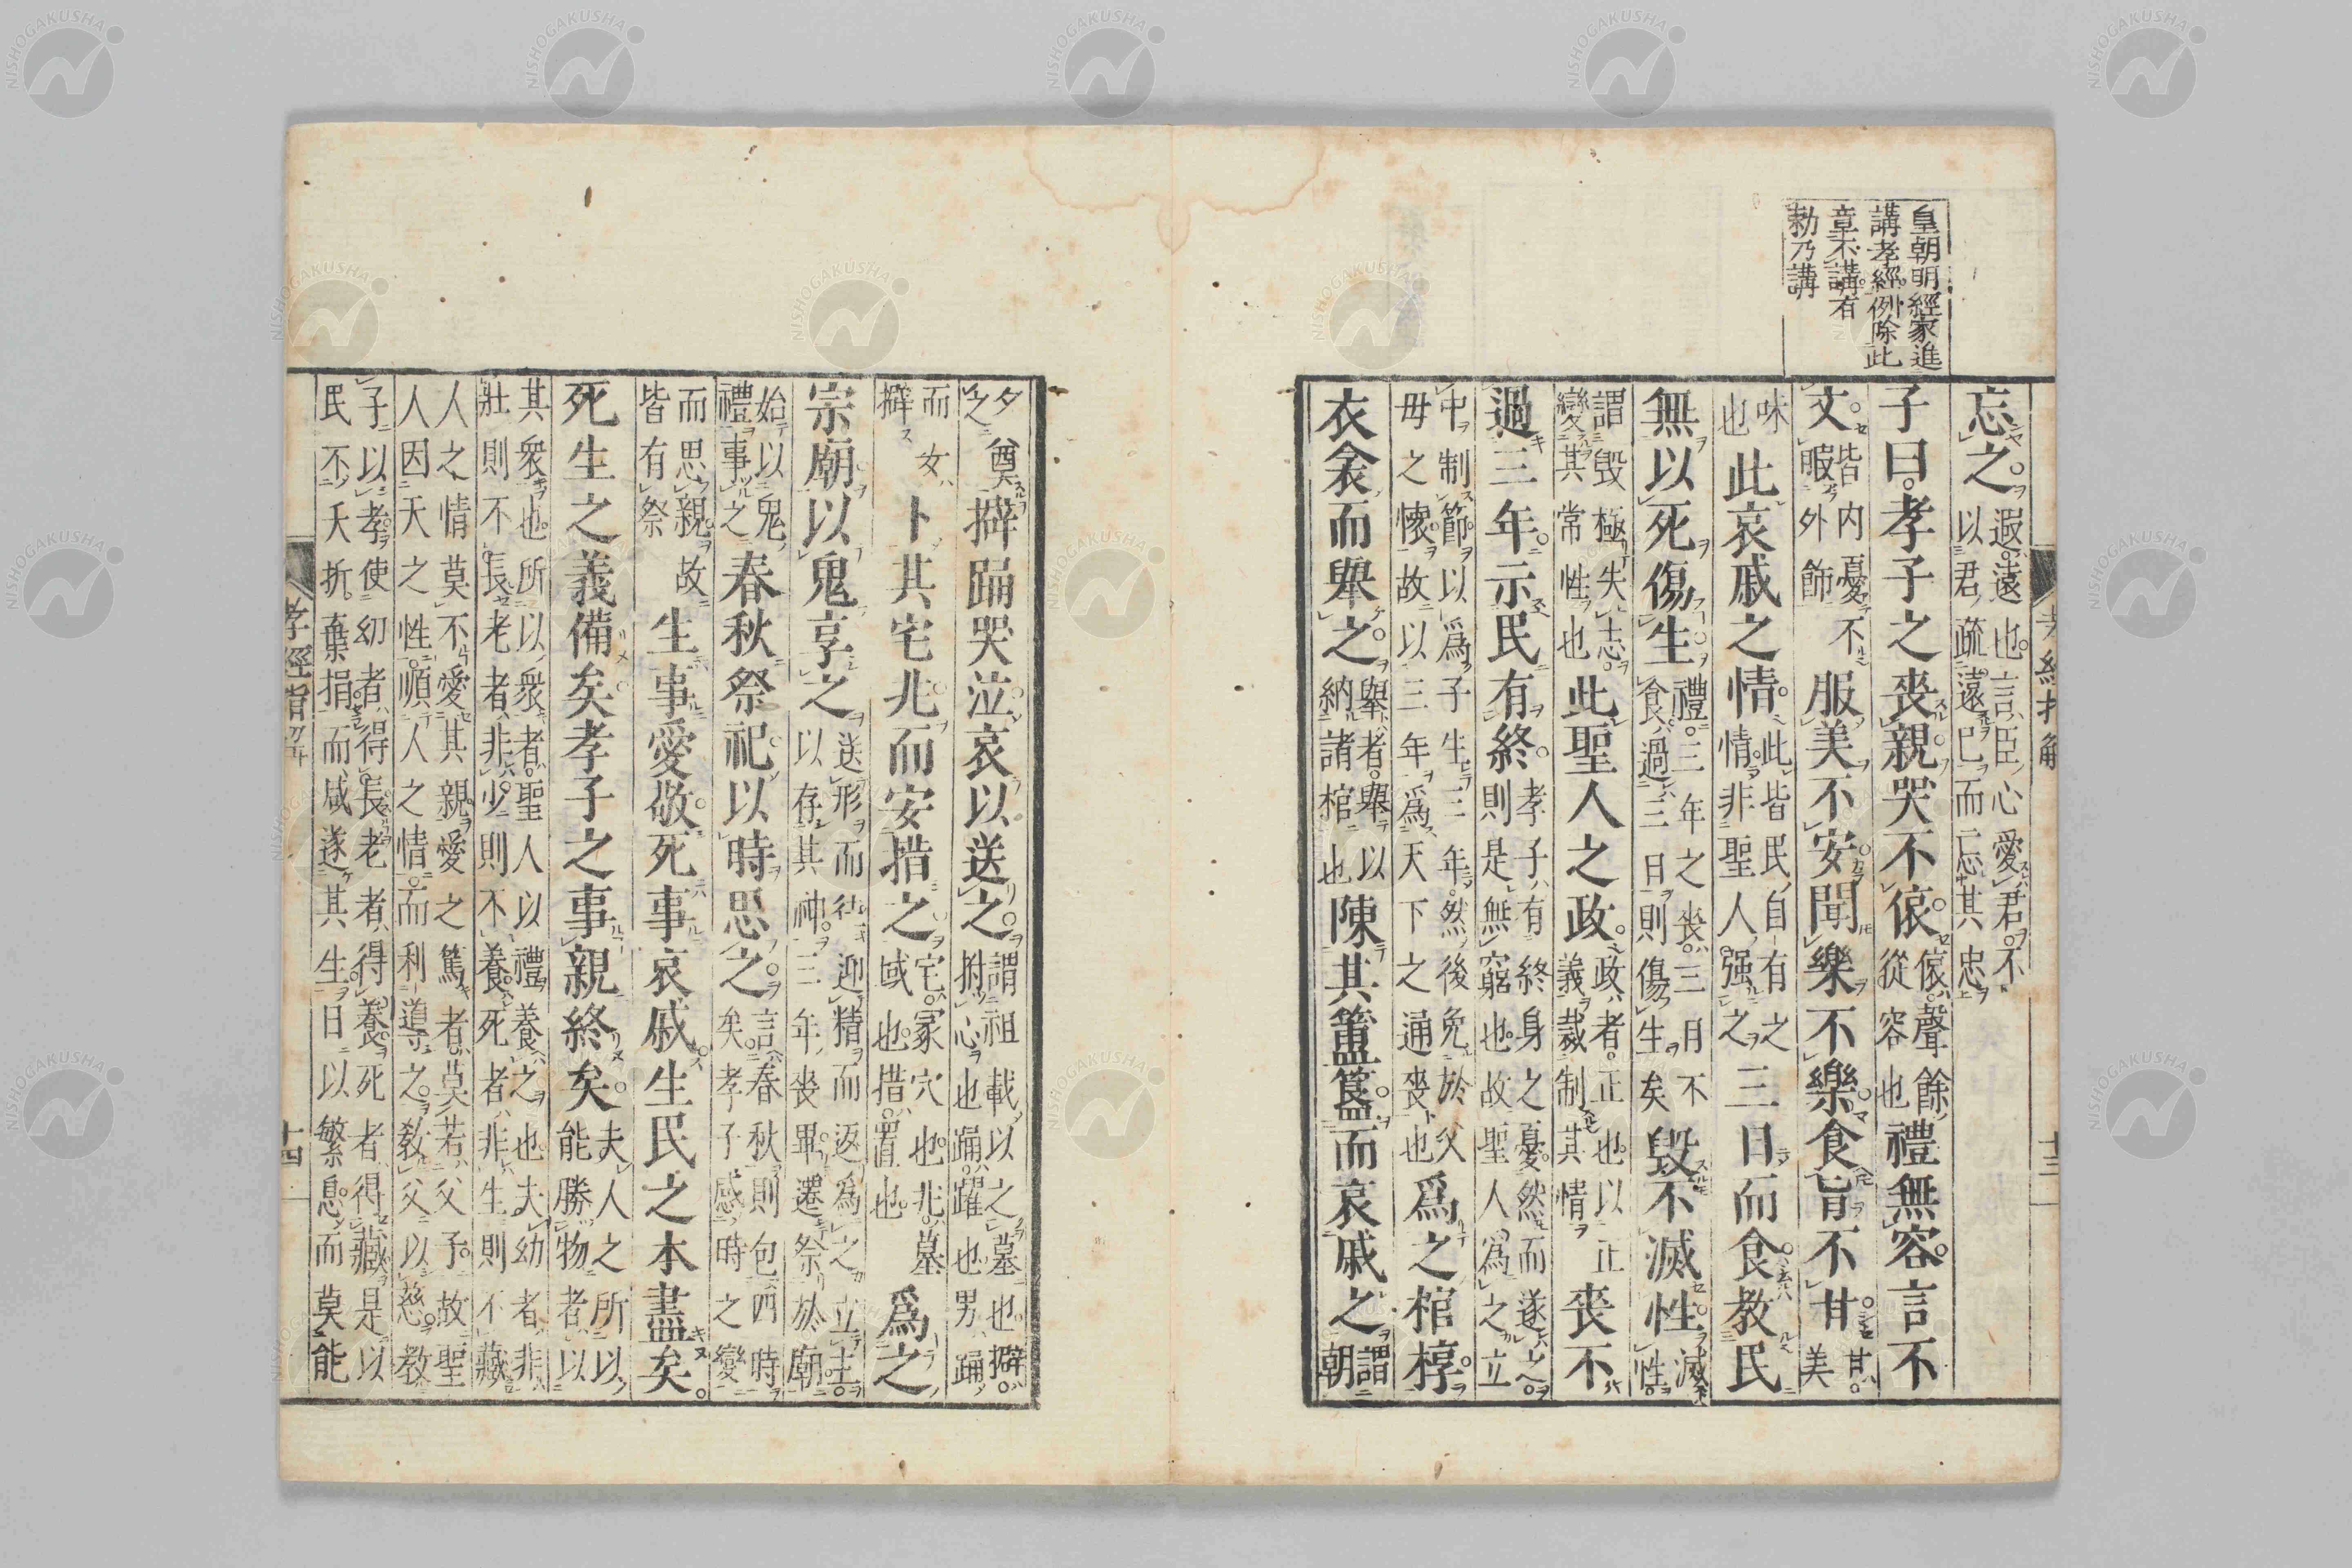 皇朝明經家進
講孝經例除此
章不講有
勅乃講
忘之遐遠也言臣心愛君不以君疏遠已而忘其忠
子曰孝子之喪親哭不偯偯聲餘從容也禮無容言不
文皆内憂不暇外飾服美不安聞樂不樂食旨不甘甘美
味也此哀戚之情此皆民自有之情非聖人强之三日而食教民
無以死傷生禮三年之喪三日不食過三日則傷生矣毀不滅性滅性
謂毀極失志變其常性也此聖人之政政者正也以正義裁制其情喪不
過三年示民有終孝子有終身之憂然而遂之則是無窮也故聖人爲之立
中制節以爲子生三年然後免於父母之懷故以三年爲天下之通喪也爲之棺椁
衣衾而舉之舉者舉以納諸棺也陳其簠簋而哀戚之謂朝
夕奠之擗踊哭泣哀以送之謂祖載以之墓也擗拊心也踊躍也男踊
而女擗卜其宅兆而安措之宅冢穴也兆墓域也措置也爲之
宗廟以鬼享之送形而往迎精而返爲之立主以存其神三年喪畢遷祭於廟
始以鬼禮事之春秋祭祀以時思之言春秋則包四時矣孝子感時之變
而思親故皆有祭生事愛敬死事哀戚生民之本盡矣
死生之義備矣孝子之事親終矣夫人之所以能勝物者以
其衆也所以衆者聖人以禮養之也夫幼者非壯則不長老者非少則不養死者非生則不藏
人之情莫不愛其親愛之篤者莫若父子故聖人因天之性順人之情而利導之教父以慈教
子以孝使幼者得長老者得養死者得藏是以民不夭折棄捐而咸遂其生日以繁息而莫能
孝經指解
十四
孝經指解
十三